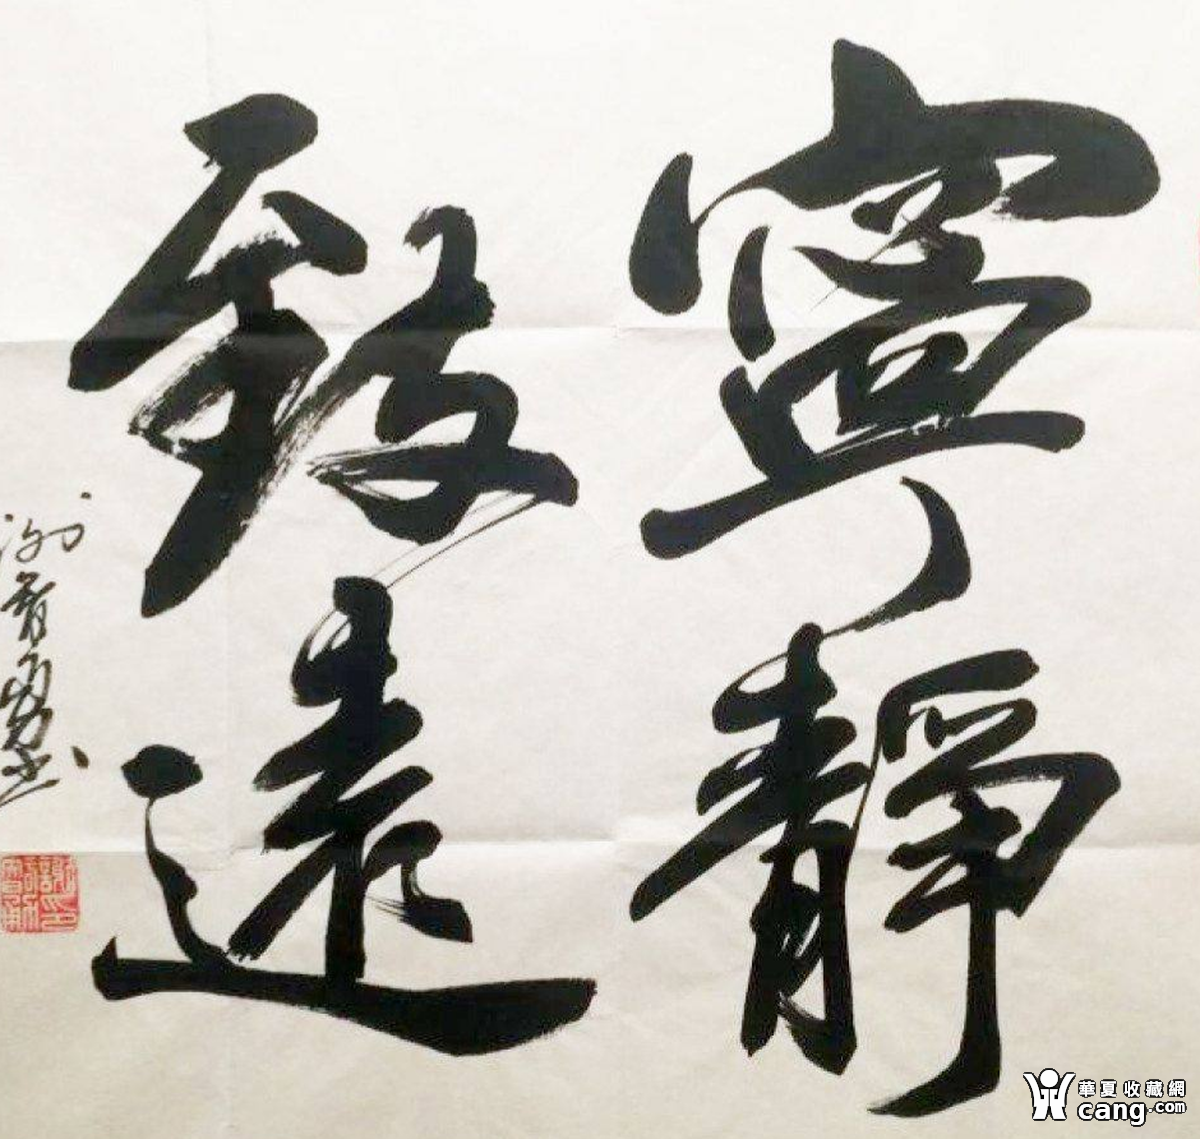 寧靜
致遠
華夏收藏網
cang.com